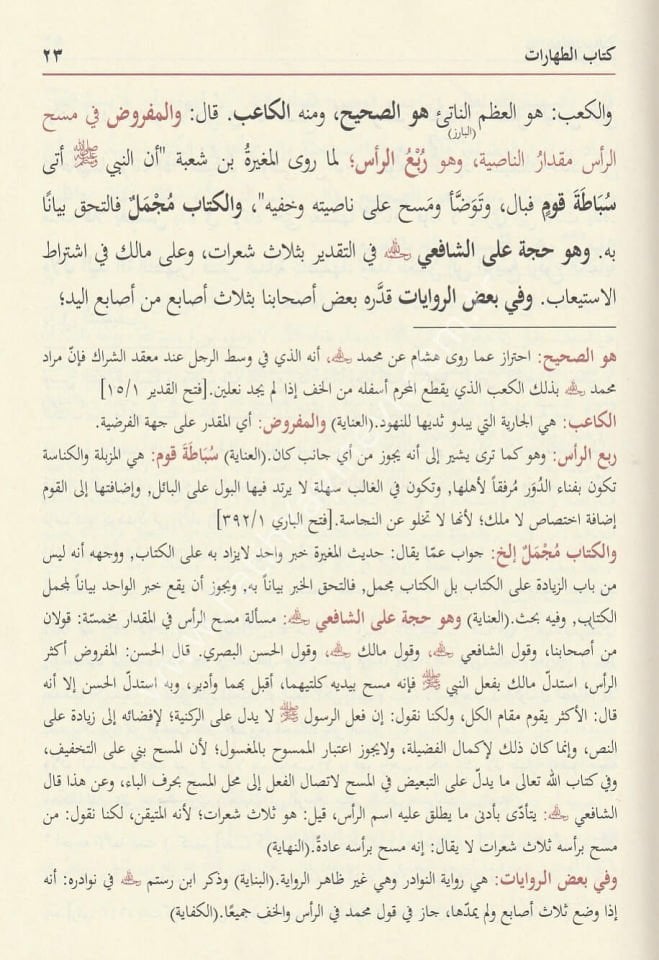 كتاب الطهارات ٢٣
والكعب: هو العظم الناتئ هو الصحيح، ومنه الكاعب. قال: والمفروض في مسح
(البارز)
الرأس مقدارُ الناصية، وهو رُبْعُ الرأس؛ لما روى المغيرةُ بن شعبة "أن النبي ﷺ أتى
سُبَاطَةَ قومٍ فبال، وتَوَضَّأ ومَسح على ناصيته وخفيه"، والكتاب مُجْمَلٌ فالتحق بيانًا
به. وهو حجة على الشافعي رحمه الله في التقدير بثلاث شعرات، وعلى مالك في اشتراط
الاستيعاب. وفي بعض الروايات قدَّره بعض أصحابنا بثلاث أصابع من أصابع اليد؛
هو الصحيح: احتراز عما روى هشام عن محمد رحمه الله، أنه الذي في وسط الرجل عند معقد الشراك فإنّ مراد
محمد رحمه الله بذلك الكعب الذي يقطع المحرم أسفله من الخف إذا لم يجد نعلين.[فتح القدير ١٥/١]
الكاعب: هي الجارية التي يبدو ثديها للنهود.(العناية) والمفروض: أي المقدر على جهة الفرضية.
ربع الرأس: وهو كما ترى يشير إلى أنه يجوز من أي جانب كان.(العناية) سُبَاطَةَ قوم: هي المزبلة والكناسة
تكون بفناء الدُوَر مُرفقاً لأهلها, وتكون في الغالب سهلة لا يرتد فيها البول على البائل, وإضافتها إلى القوم
إضافة اختصاص لا ملك؛ لأنها لا تخلو عن النجاسة.[فتح الباري ٣٩٢/١]
والكتاب مُجْمَلٌ إلخ: جواب عمّا يقال: حديث المغيرة خبر واحد لايزاد به على الكتاب, ووجهه أنه ليس
من باب الزيادة على الكتاب بل الكتاب مجمل, فالتحق الخبر بياناً به, ويجوز أن يقع خبر الواحد بياناً لمجمل
الكتاب, وفيه بحث.(العناية) وهو حجة على الشافعي رحمه الله: مسألة مسح الرأس في المقدار مخمسة: قولان
من أصحابنا، وقول الشافعي رحمه الله، وقول مالك رحمه الله، وقول الحسن البصري. قال الحسن: المفروض أكثر
الرأس، استدلّ مالك بفعل النبي ﷺ فإنه مسح بيديه كلتيهما، أقبل بهما وأدبر، وبه استدلّ الحسن إلا أنه
قال: الأكثر يقوم مقام الكل، ولكنا نقول: إن فعل الرسول ﷺ لا يدل على الركنية؛ لإفضائه إلى زيادة على
النص، وإنما كان ذلك لإكمال الفضيلة، ولايجوز اعتبار الممسوح بالمغسول؛ لأن المسح بني على التخفيف،
وفي كتاب الله تعالى ما يدلّ على التبعيض في المسح لاتصال الفعل إلى محل المسح بحرف الباء، وعن هذا قال
الشافعي رحمه الله: يتأدّى بأدنى ما يطلق عليه اسم الرأس، قيل: هو ثلاث شعرات؛ لأنه المتيقن، لكنا نقول: من
مسح برأسه ثلاث شعرات لا يقال: إنه مسح برأسه عادةً.(النهاية)
وفي بعض الروايات: هي رواية النوادر وهي غير ظاهر الرواية.(البناية) وذكر ابن رستم رحمه الله في نوادره: أنه
إذا وضع ثلاث أصابع ولم يمدّها، جاز في قول محمد في الرأس والخف جميعًا.(الكفاية)